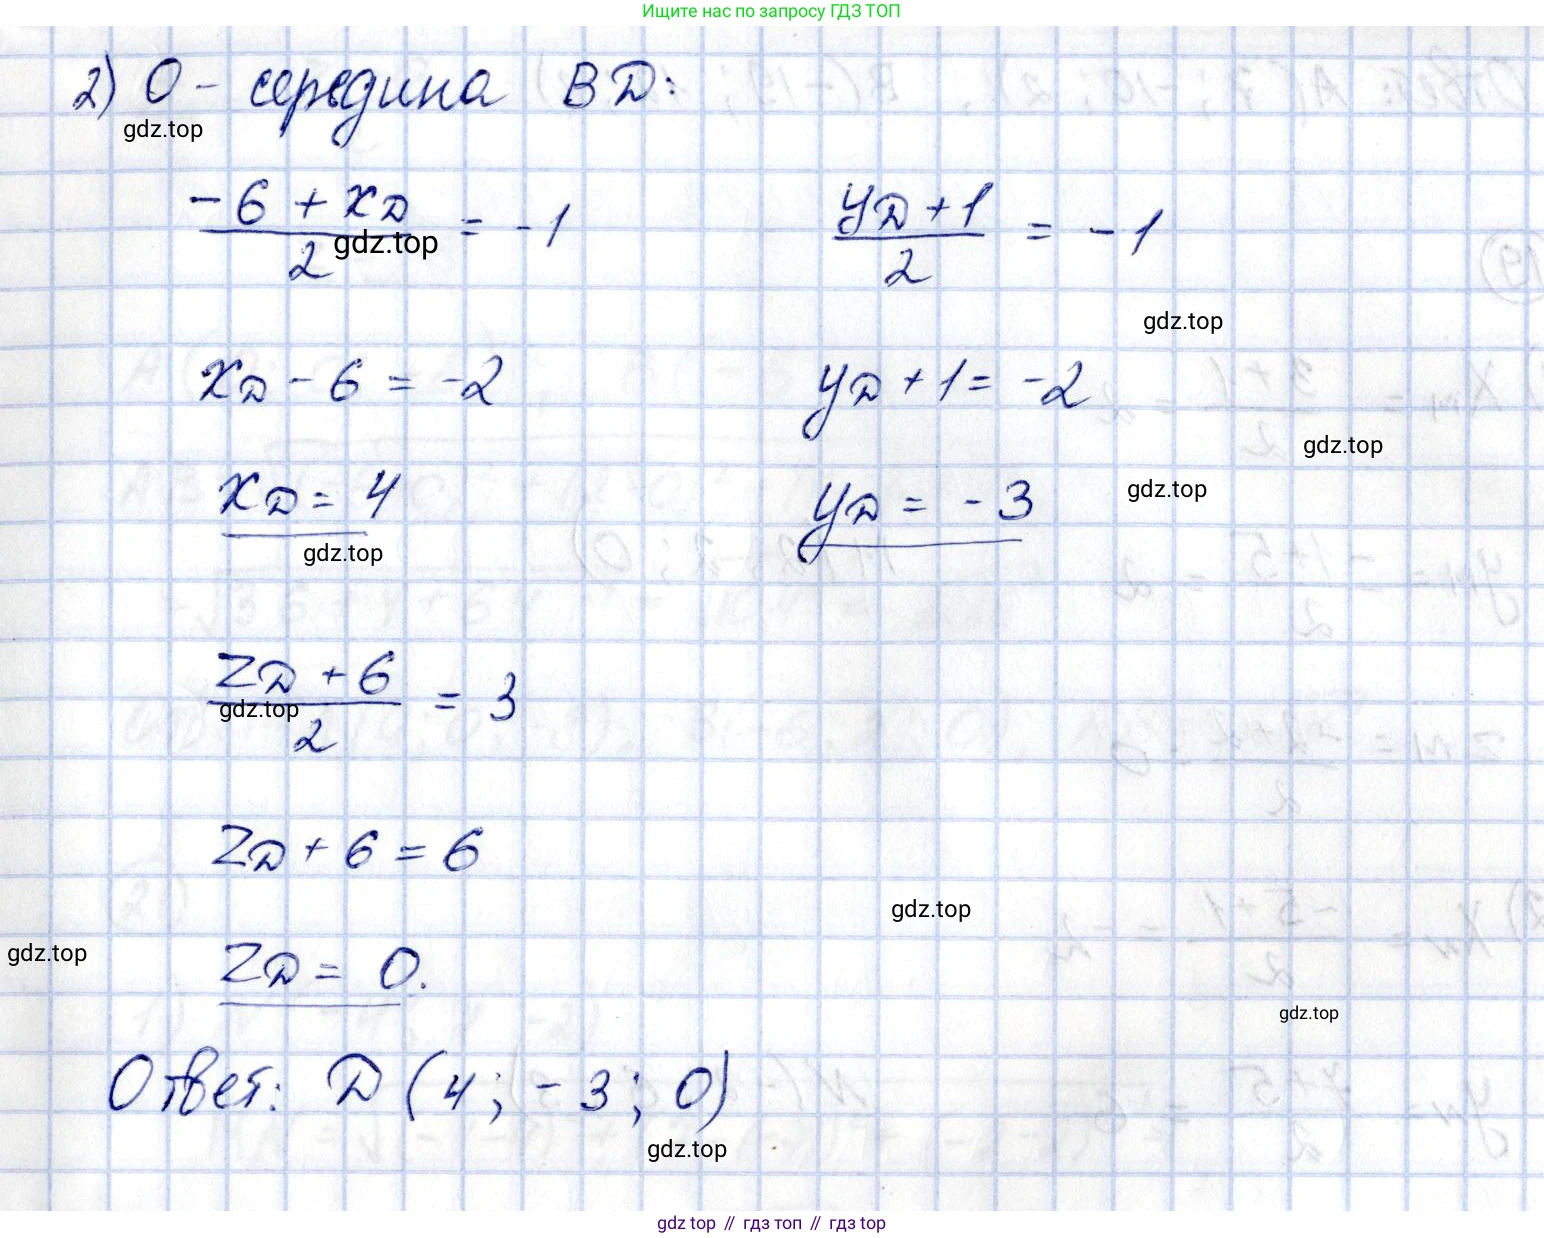 Ищите нас по запросу ГДЗ ТОП
2) О - середина BD:
gdz.top
(-6 + x_D)/2 = -1
(y_D + 1)/2 = -1
gdz.top
gdz.top
x_D - 6 = -2
y_D + 1 = -2
gdz.top
x_D = 4
y_D = -3
gdz.top
gdz.top
(z_D + 6)/2 = 3
gdz.top
z_D + 6 = 6
gdz.top
gdz.top
z_D = 0.
gdz.top
Ответ: D (4; -3; 0)
gdz.top
gdz top // гдз топ // gdz.top